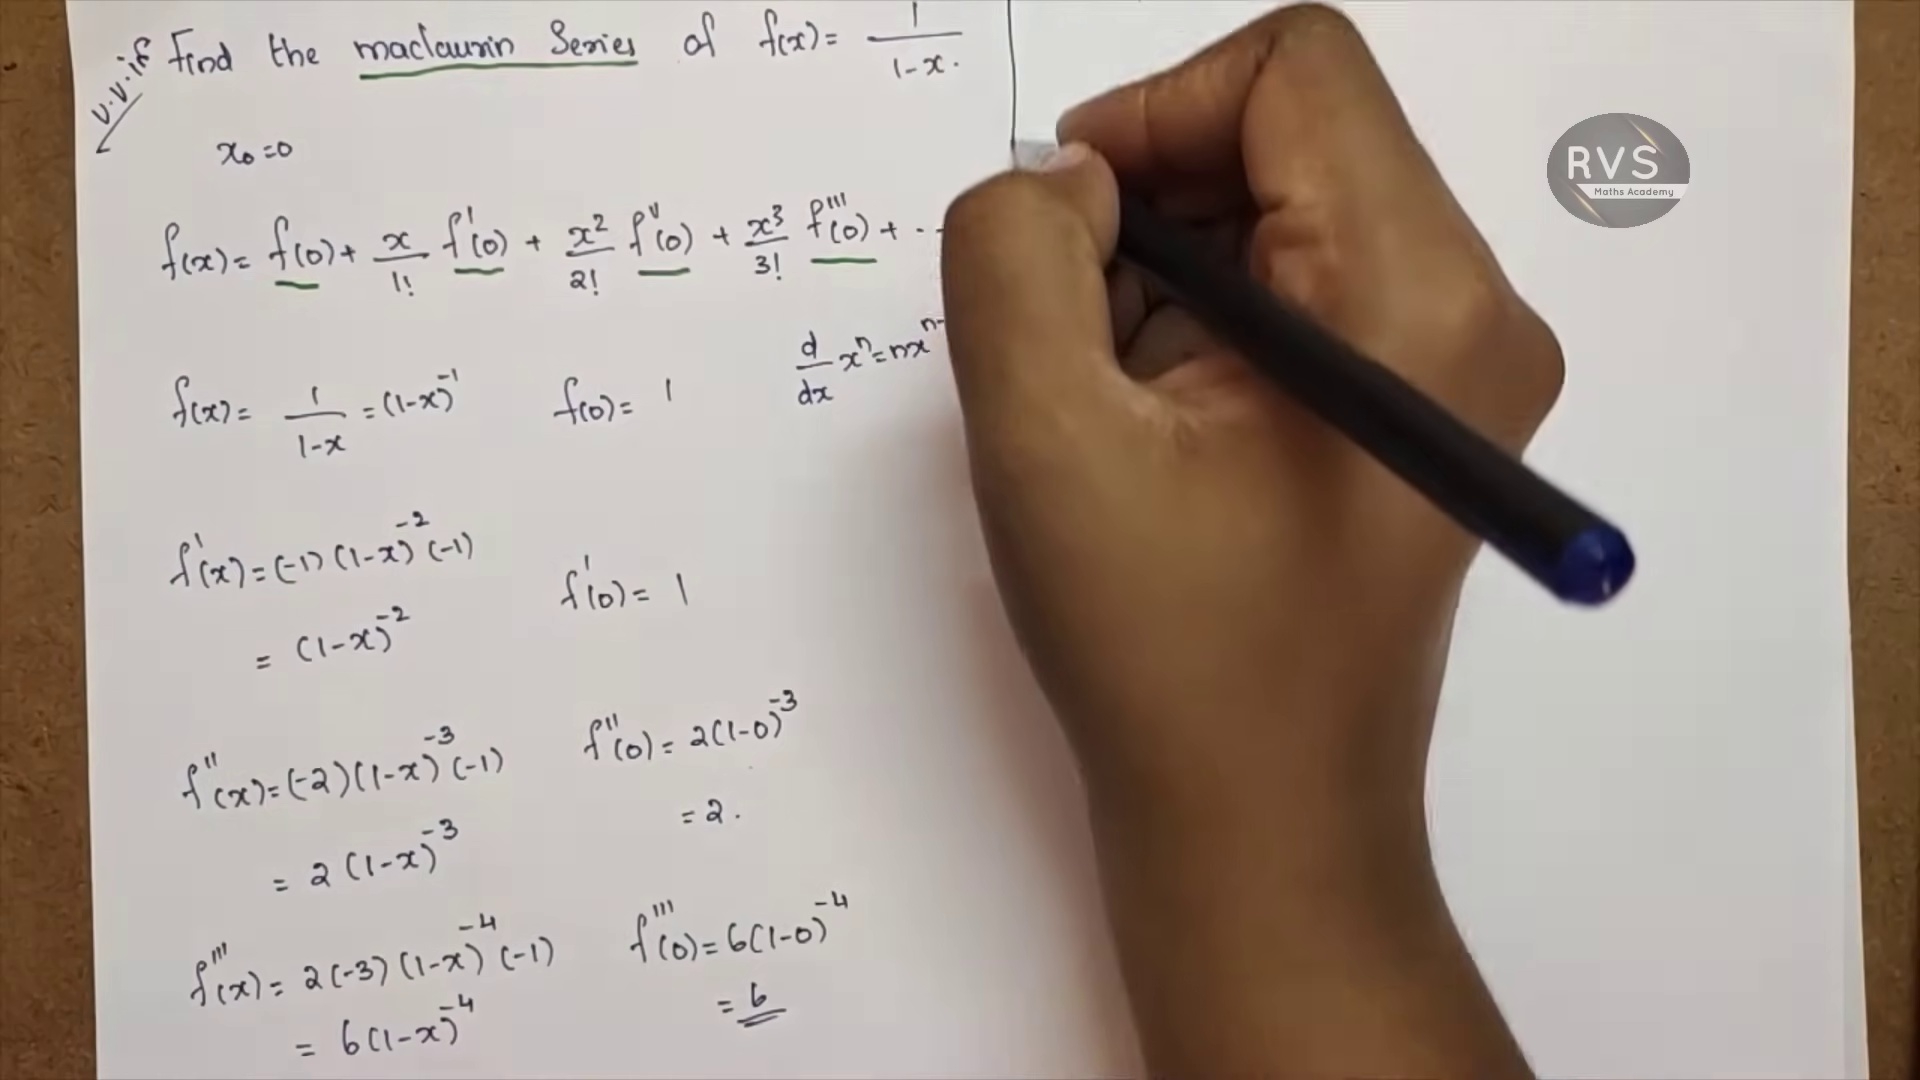 v.v.if Find the maclaurin Series of f(x) = 1/1-x.
x₀=0
f(x) = f(0) + x/1! f'(0) + x²/2! f''(0) + x³/3! f'''(0) + ..
d/dx xⁿ = nxⁿ⁻
f(x) = 1/1-x = (1-x)⁻¹ f(0) = 1
f'(x) = (-1) (1-x)⁻² (-1)
= (1-x)⁻² f'(0) = 1
f''(x) = (-2) (1-x)⁻³ (-1) f''(0) = 2(1-0)⁻³
= 2 (1-x)⁻³ = 2.
f'''(x) = 2(-3) (1-x)⁻⁴ (-1) f'''(0) = 6(1-0)⁻⁴
= 6(1-x)⁻⁴ = 6
RVS
Maths Academy